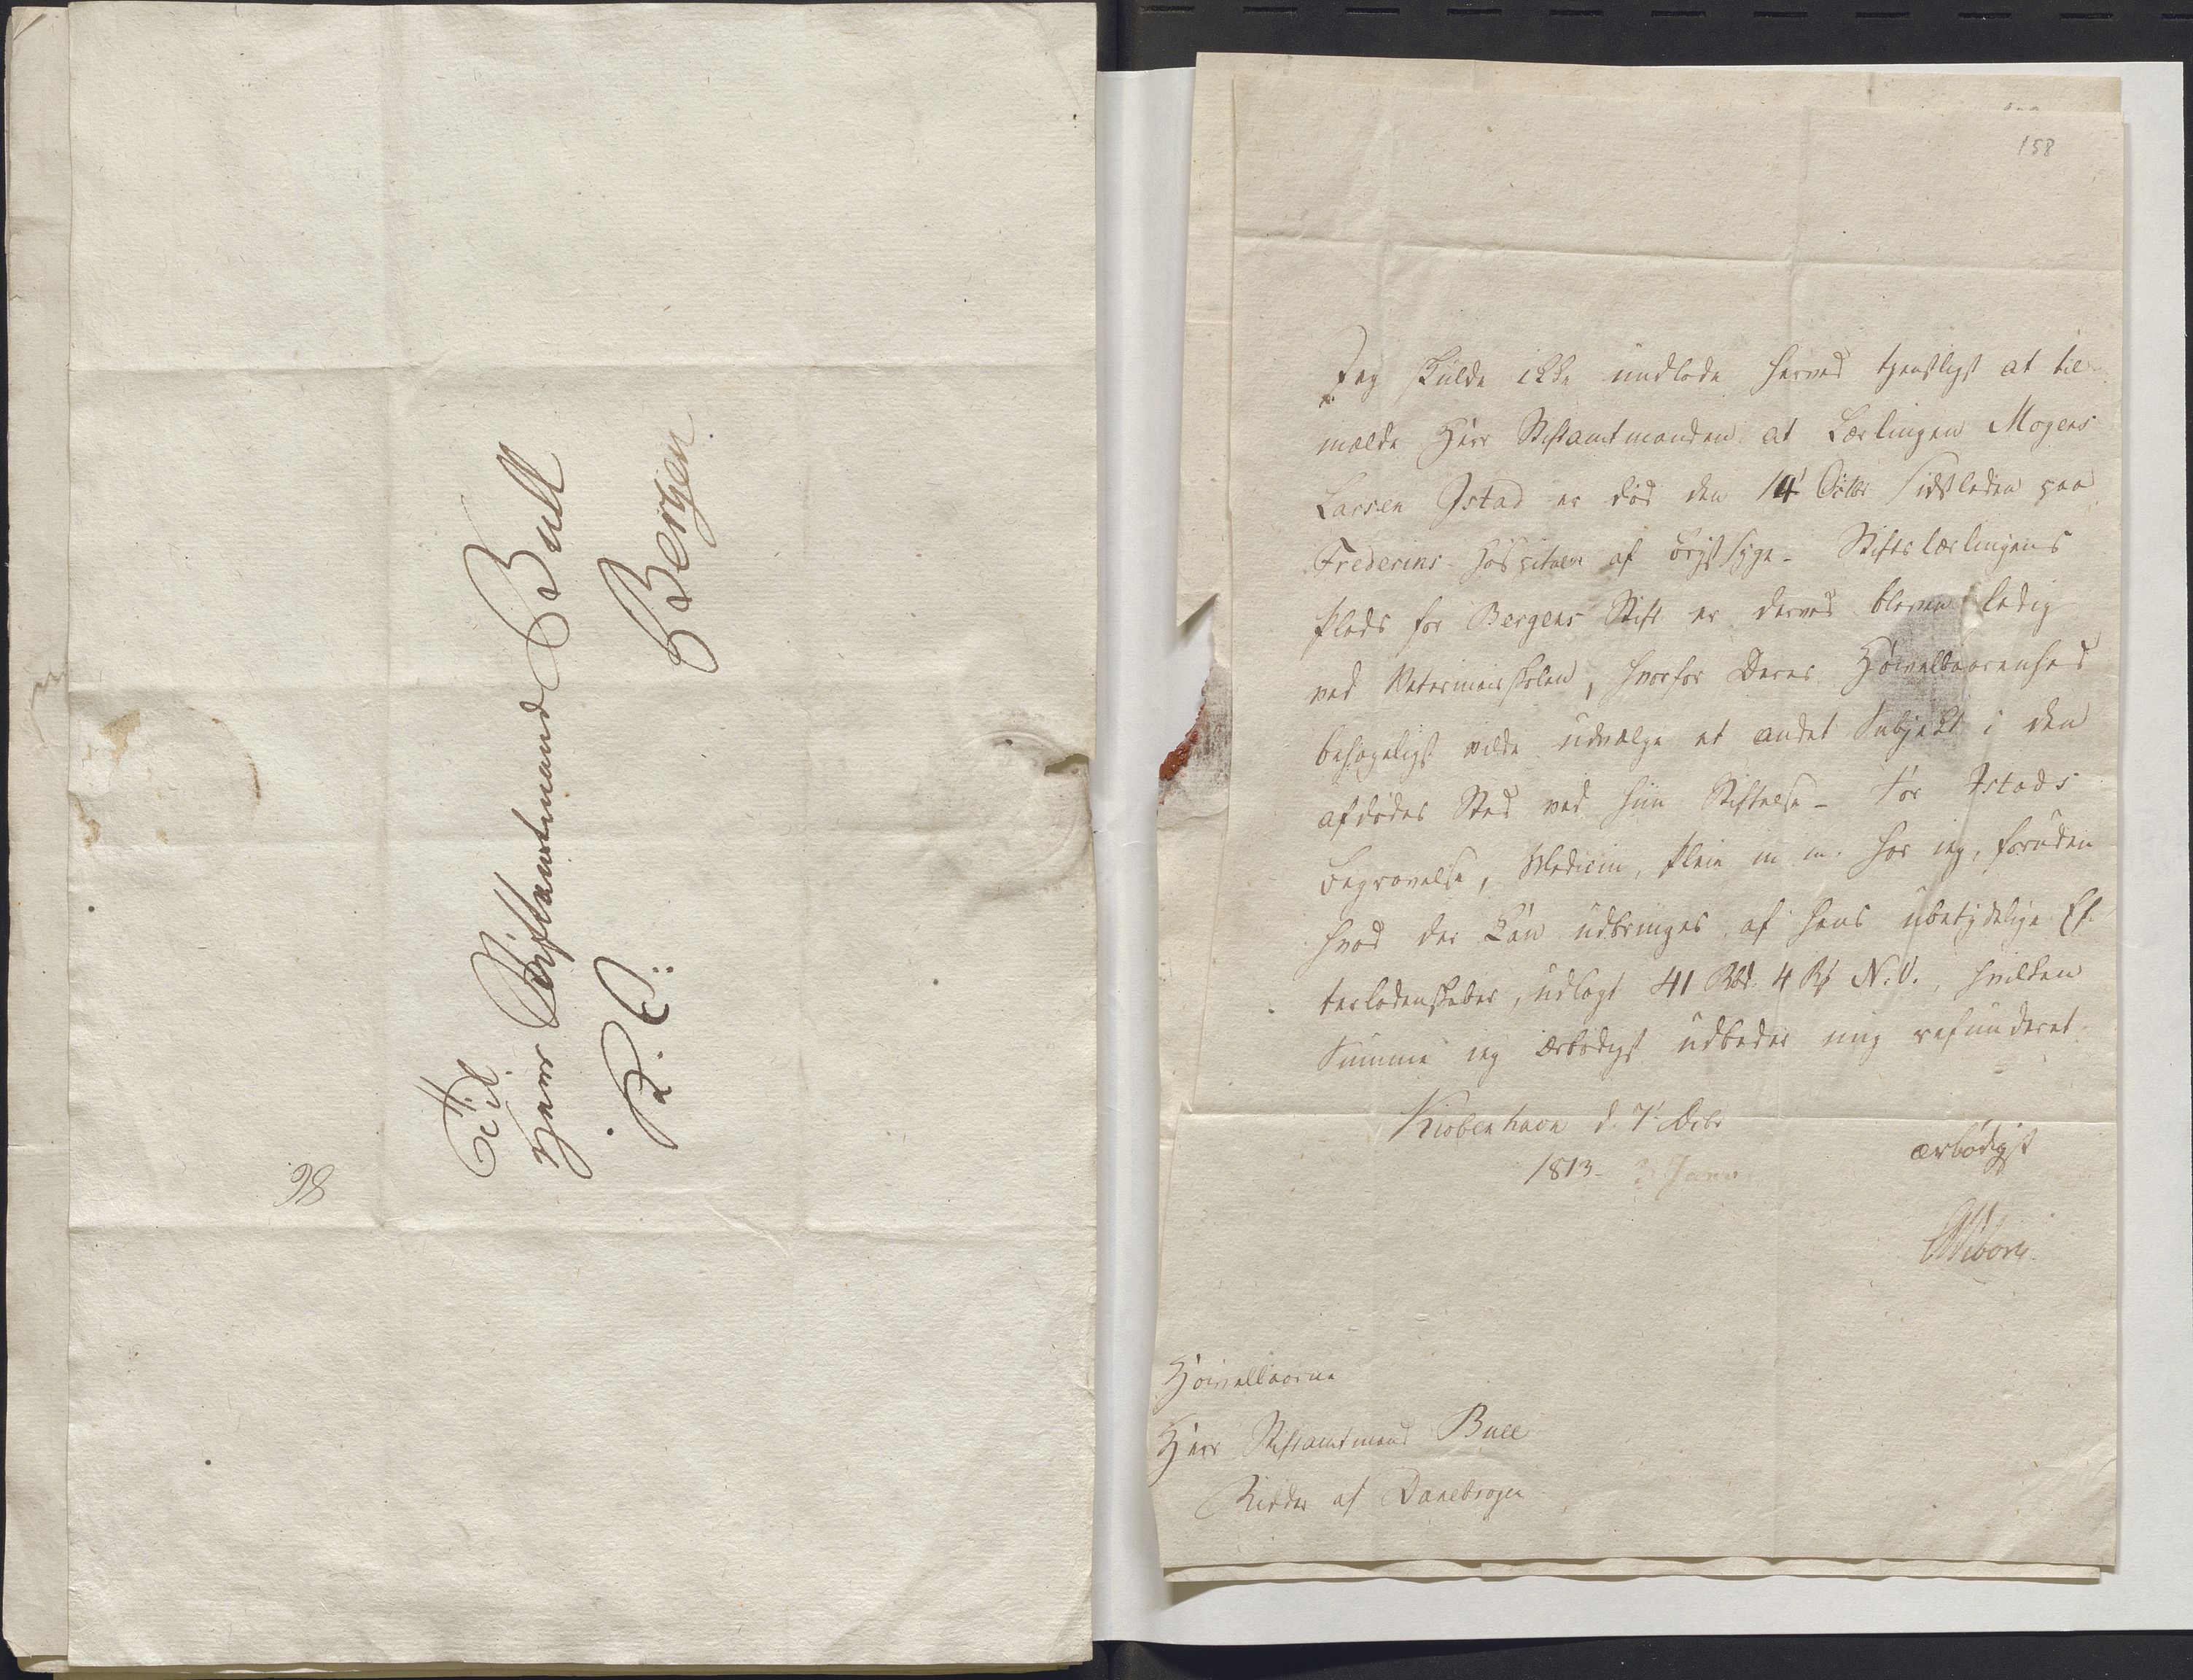 Til
Herr Stiftamtmand Bull
R. D:
Bergen
98
158
Jeg skulde ikke undlade herved tjenstligst at til-
melde Herr Stiftamtmanden at Lærlingen Mogens
Larsen Istad er død den 14 Octbr sidstleden paa
Frederiks Hospitalet af Brystsyge - Stiftslærlingens
Plads for Bergens Stift er derved bleven ledig
ved Veterinairskolen, hvorfor Deres Høivelbaarenhed
behageligst vilde udvælge et andet Subjekt i den
afdødes Sted ved hiin Stiftelse - For Istads
Begravelse, Medicin, Pleie m m. har jeg, foruden
hvad der kan udbringes af hans ubetydelige Ef-
terladenskaber, udlagt 41 Rbd. 4 Rß N.V., hvilken
Summa jeg ærbødigst udbeder mig refunderet.
Kiöbenhavn d. 7 Decbr
1813 - 3 Janr
ærbödigst
Viborg
Høivelbaarne
Herr Stiftamtmand Bull
Ridder af Danebrogen